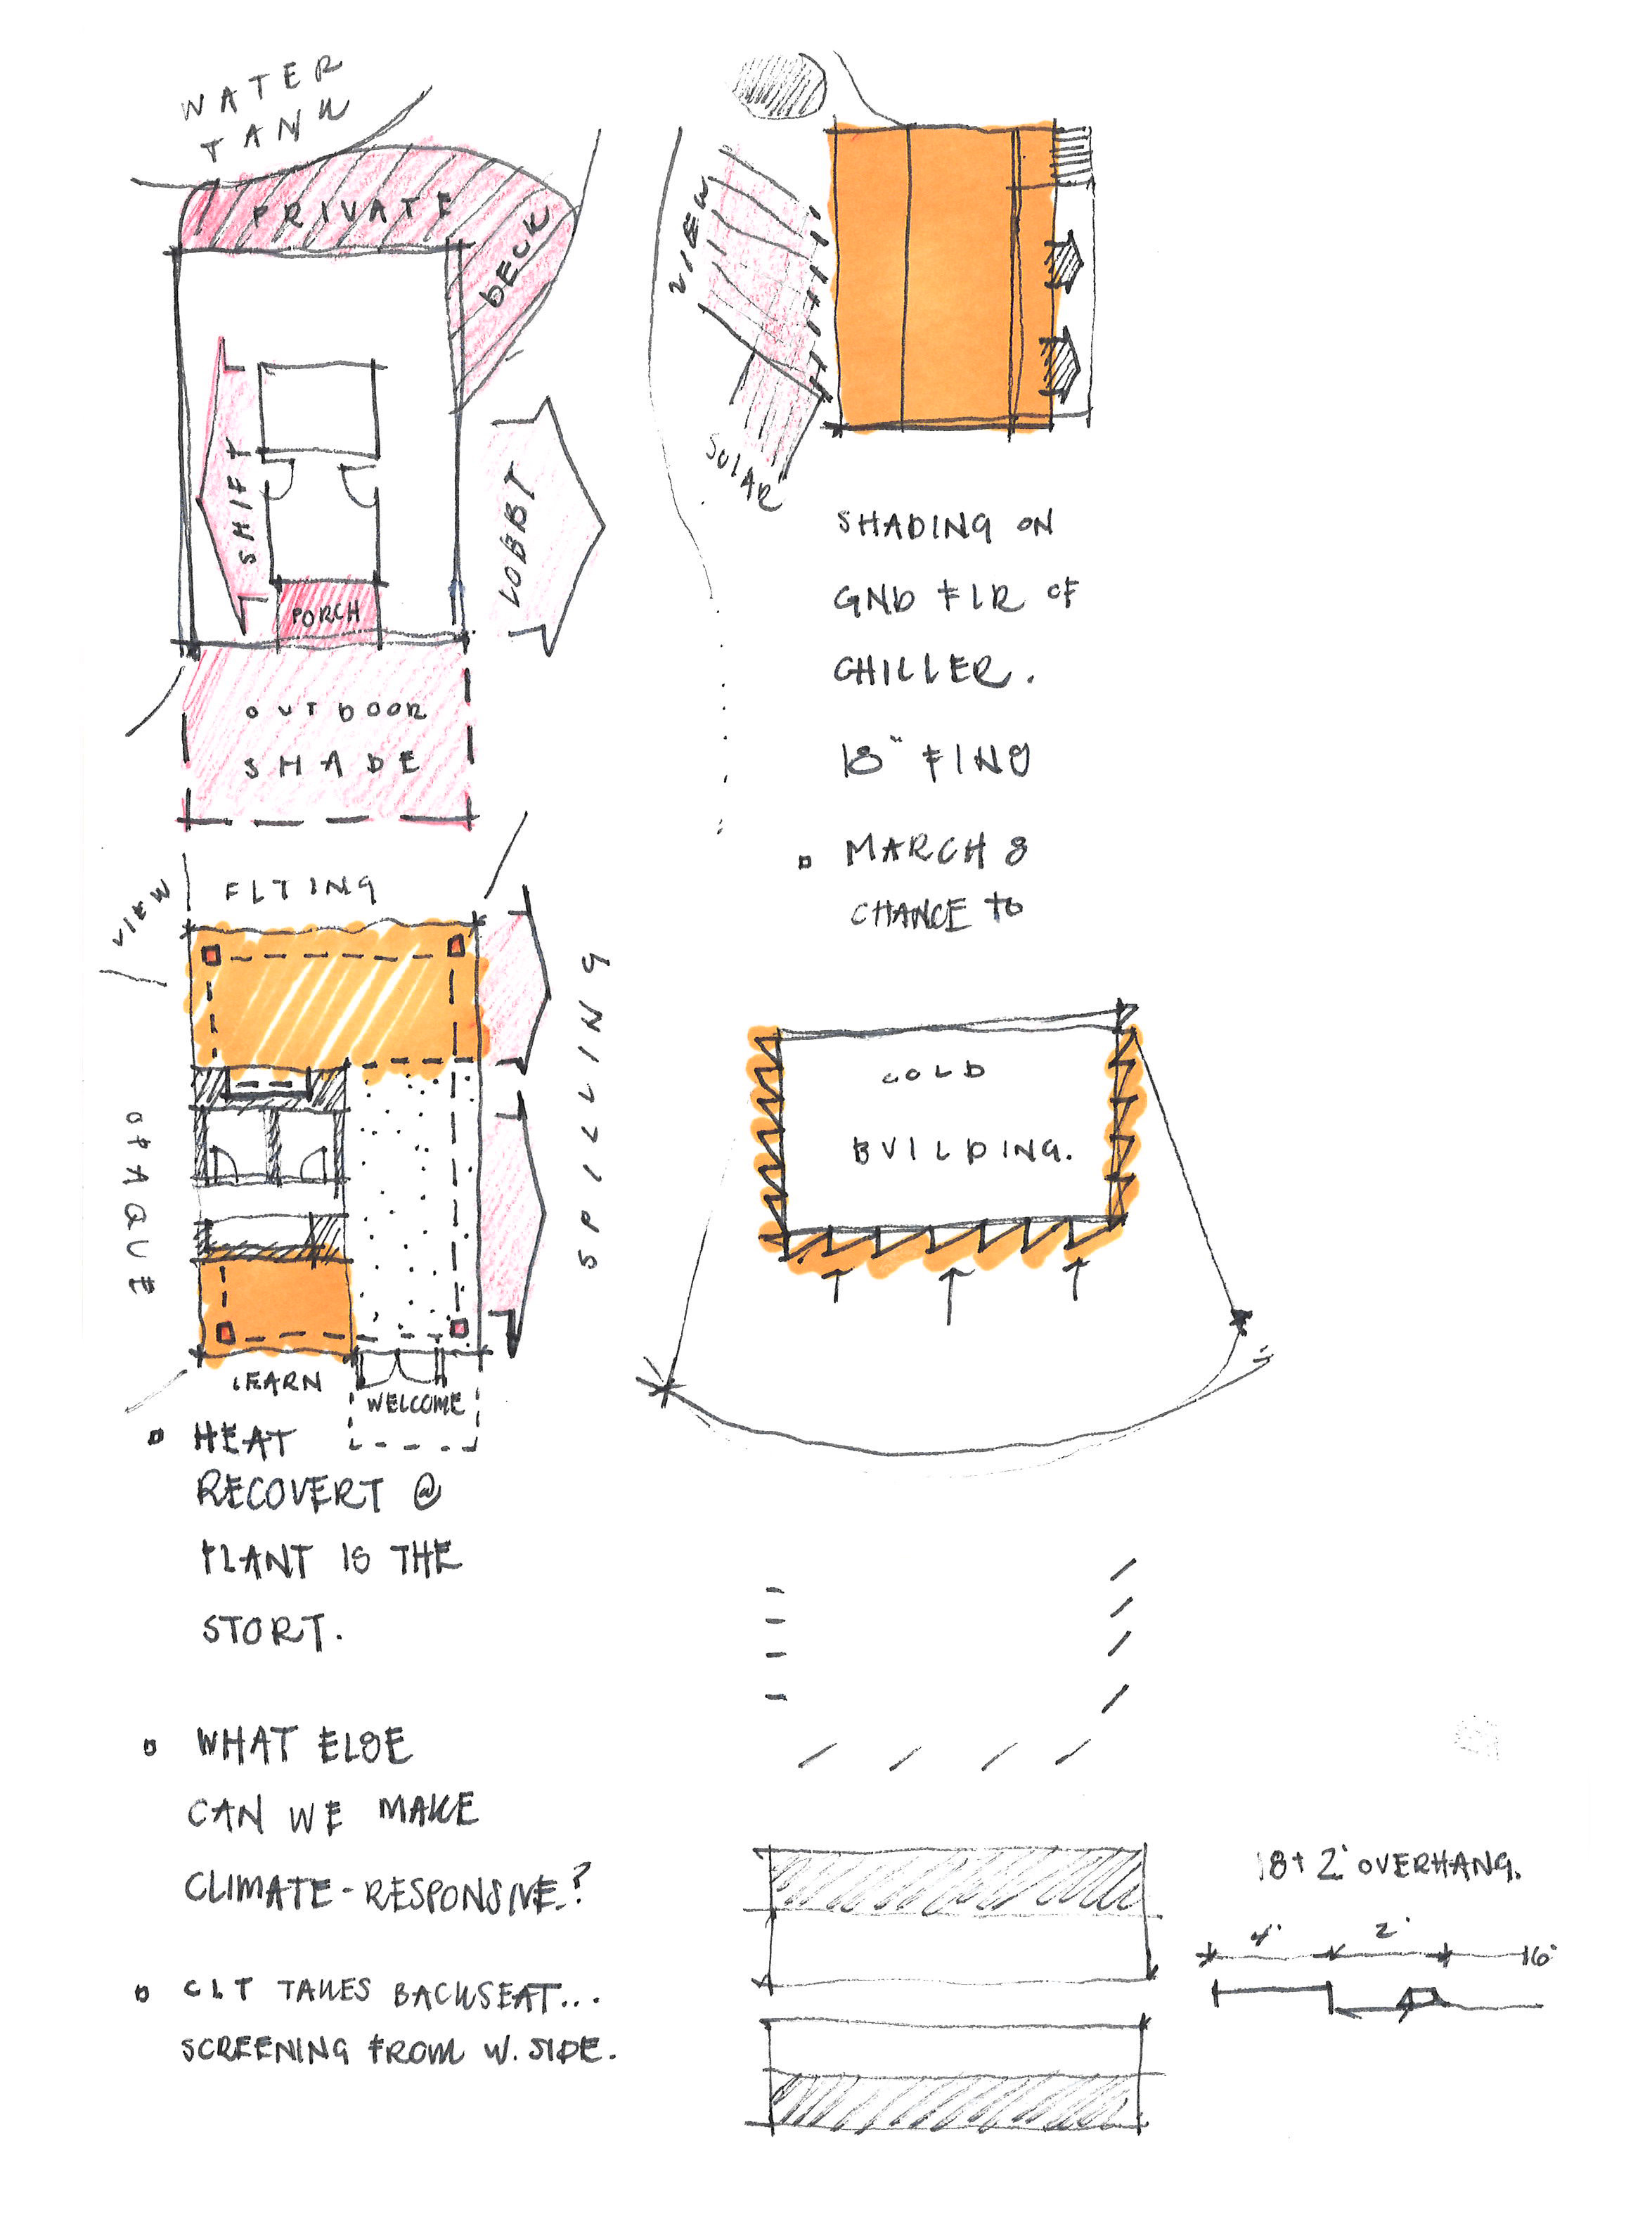 WATER
TANK
PRIVATE
DECK
SHIFT
LOBBY
PORCH
OUTDOOR
SHADE
VIEW
SOLAR
SHADING ON
GND FLR OF
CHILLER.
18" FINS
MARCH 8
CHANCE TO
VIEW
FLYING
SPILLING
OPAQUE
LEARN
WELCOME
COLD
BUILDING.
HEAT
RECOVERY @
PLANT IS THE
STORY.
WHAT ELSE
CAN WE MAKE
CLIMATE-RESPONSIVE?
CLT TAKES BACKSEAT...
SCREENING FROM W. SIDE.
18+2' OVERHANG.
4' 2' 16'